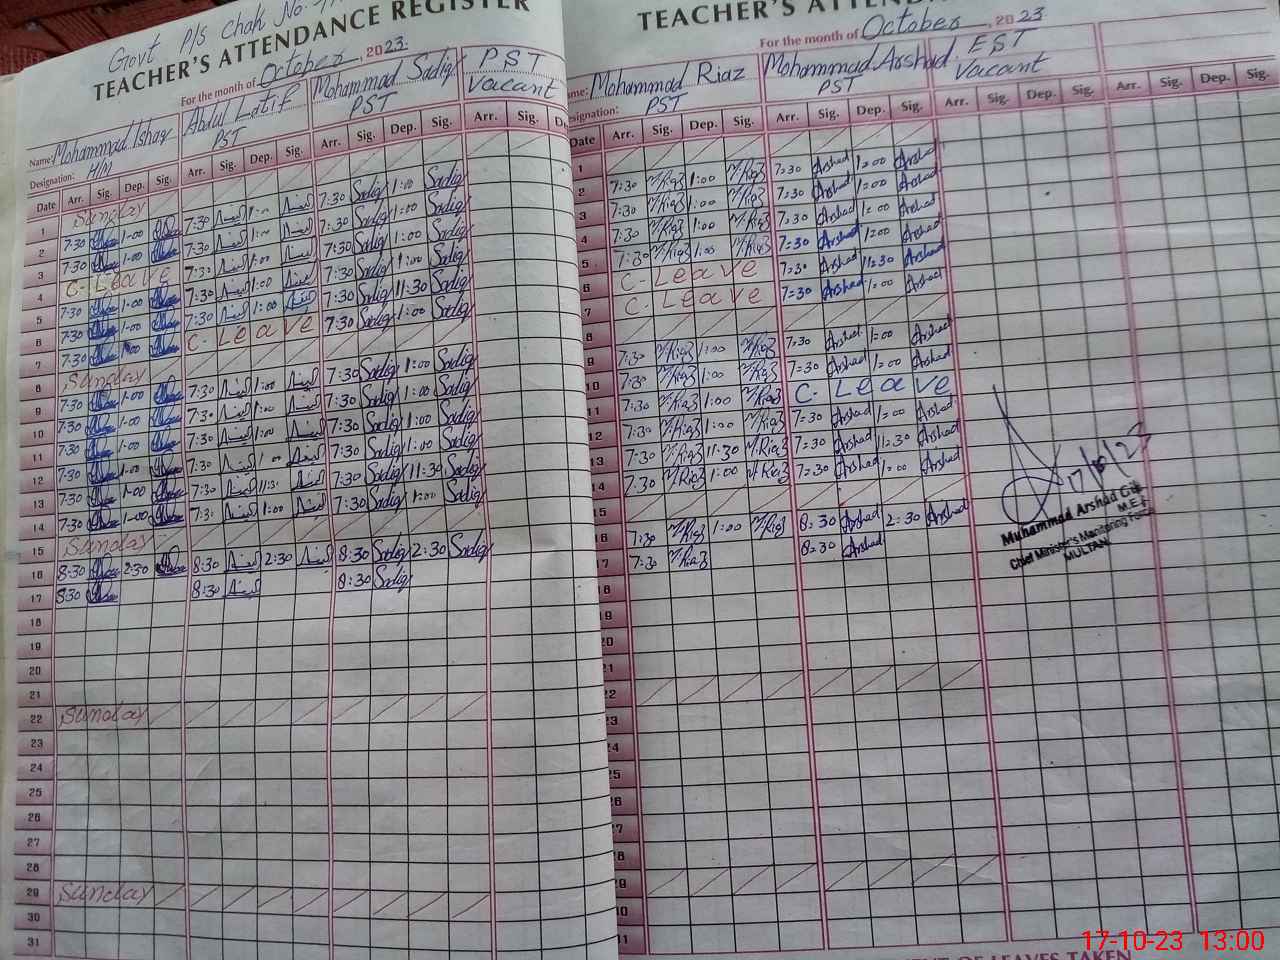 Govt P/S Chak No.
TEACHER'S ATTENDANCE REGISTER
For the month of October, 2023.
Name: Mohammad Ishaq Abdul Latif Mohammad Sadiq PST
Designation: H/M PST PST Vacant
Date Arr. Sig. Dep. Sig. Arr. Sig. Dep. Sig. Arr. Sig. Dep. Sig. Arr. Sig.
1 Sunday
2 7:30 1-00 7:30 7:30 Sadiq 1:00 Sadiq
3 7:30 1-00 7:30 1:00 7:30 Sadiq 1:00 Sadiq
4 C. Leave 7:30 1:00 7:30 Sadiq 1:00 Sadiq
5 7:30 1-00 7:30 1:00 7:30 Sadiq 1:00 Sadiq
6 7:30 1-00 7:30 7:30 Sadiq 11:30 Sadiq
7 7:30 C. Leave 7:30 Sadiq 1:00 Sadiq
8 Sunday
9 7:30 1-00 7:30 1:00 7:30 Sadiq 1:00 Sadiq
10 7:30 1-00 7:30 1:00 7:30 Sadiq 1:00 Sadiq
11 7:30 1-00 7:30 1:00 7:30 Sadiq 1:00 Sadiq
12 7:30 1-00 7:30 1:00 7:30 Sadiq 1:00 Sadiq
13 7:30 7:30 7:30 Sadiq 11:30 Sadiq
14 7:30 1-00 1:00 7:30 Sadiq 1:00 Sadiq
15 Sunday
16 8:30 2:30 8:30 2:30 8:30 Sadiq 2:30 Sadiq
17 8:30 8:30 8:30 Sadiq
18
19
20
21
22 Sunday
23
24
25
26
27
28
29 Sunday
30
31
TEACHER'S
For the month of October, 2023
Mohammad Riaz Mohammad Arshad. EST
PST PST Vacant
Date Arr. Sig. Dep. Sig. Arr. Sig. Dep. Sig. Arr. Sig. Dep. Sig. Arr. Sig. Dep. Sig.
1
2 7:30 M.Riaz 1:00 M.Riaz 7:30 Arshad 1:00 Arshad
3 7:30 M.Riaz 1:00 M.Riaz 7:30 Arshad 1:00 Arshad
4 7:30 M.Riaz 1:00 M.Riaz 7:30 Arshad 1:00 Arshad
5 7:30 M.Riaz 1:00 M.Riaz 7:30 Arshad 1:00 Arshad
6 C. Leave 7:30 Arshad 11:30 Arshad
7 C. Leave 7:30 Arshad 1:00 Arshad
9 7:30 M.Riaz 1:00 M.Riaz 7:30 Arshad 1:00 Arshad
10 7:30 M.Riaz 1:00 M.Riaz 7:30 Arshad 1:00 Arshad
11 7:30 M.Riaz 1:00 M.Riaz C. Leave
12 7:30 M.Riaz 1:00 M.Riaz 7:30 Arshad 1:00 Arshad
13 7:30 M.Riaz 11:30 M.Riaz 7:30 Arshad 11:30 Arshad
14 7:30 M.Riaz 1:00 M.Riaz 7:30 Arshad 1:00 Arshad
15
16 7:30 M.Riaz 1:00 M.Riaz 8:30 Arshad 2:30 Arshad
17 7:30 M.Riaz 8:30 Arshad
17/10/23
Muhammad Arshad
M.E.A
Chief Minister's Monitoring Force
MULTAN
OF LEAVES TAKEN
17-10-23 13:00